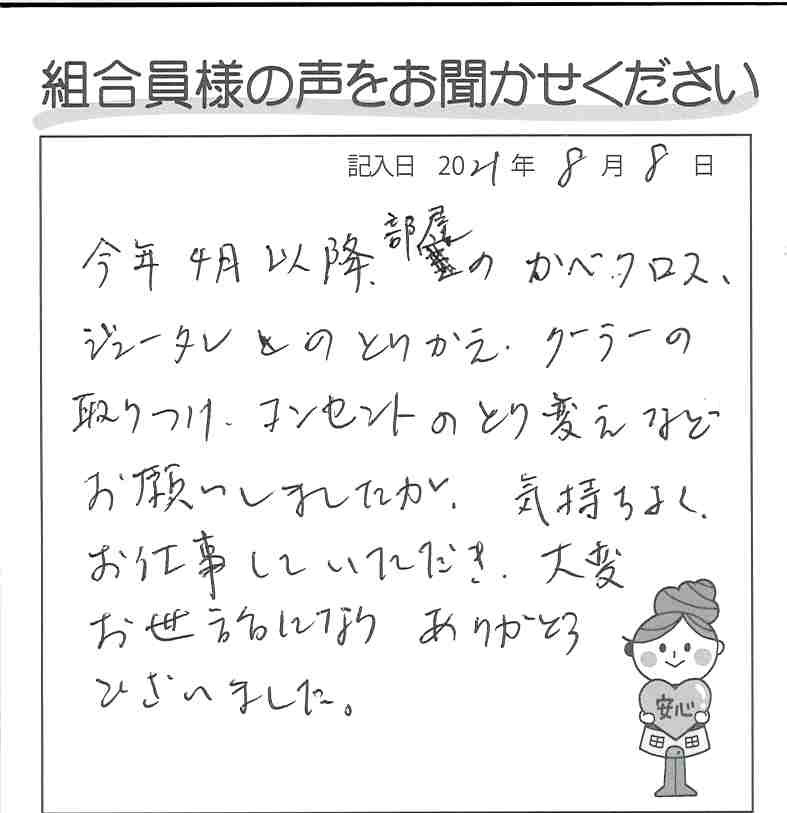 組合員様の声をお聞かせください
記入日 2021年 8月 8日
今年4月以降、部屋の かべクロス、
ジュータンとのとりかえ、クーラーの
取りつけ、コンセントのとり変えなど
お願いしましたが、気持ちよく、
お仕事していただき、大変
お世話になり ありがとう
ございました。
安心